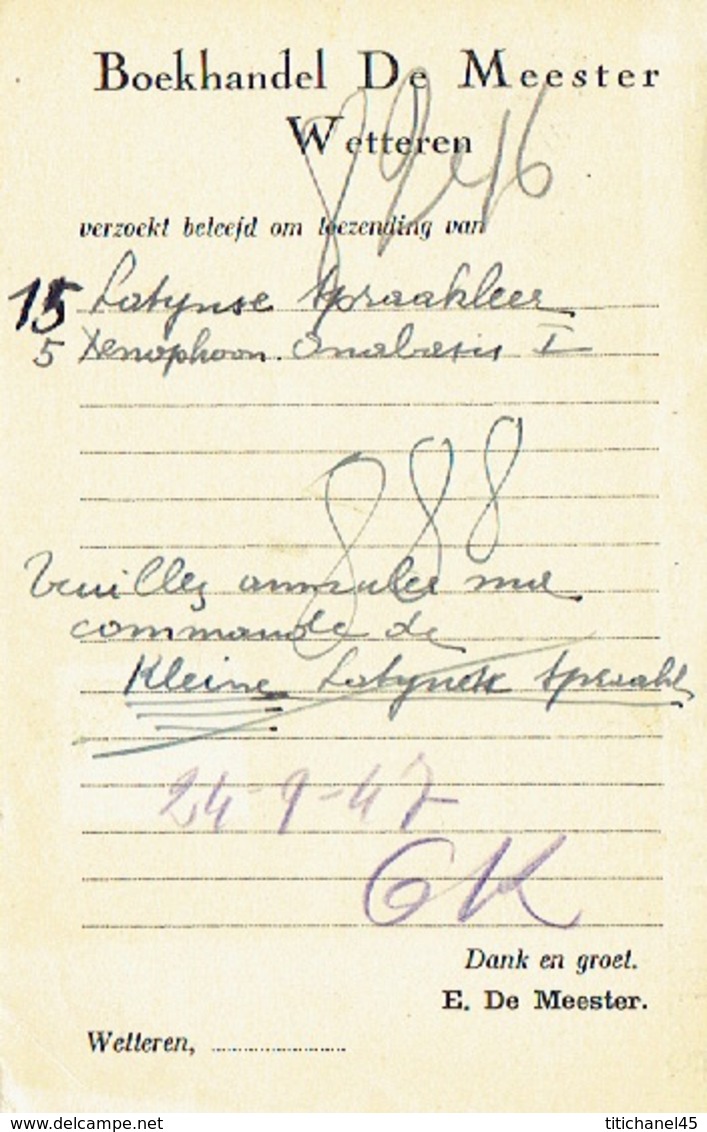 Boekhandel De Meester
Wetteren
verzoekt beleefd om toezending van
15 Latynse Spraakleer
5 Xenophoon. Anabasis I
888
Veuillez annuler ma
commande de
Kleine Latynse Spraakl
24-9-47
OK
Dank en groet.
E. De Meester.
Wetteren, ........................
delcampe.net
titichanel45